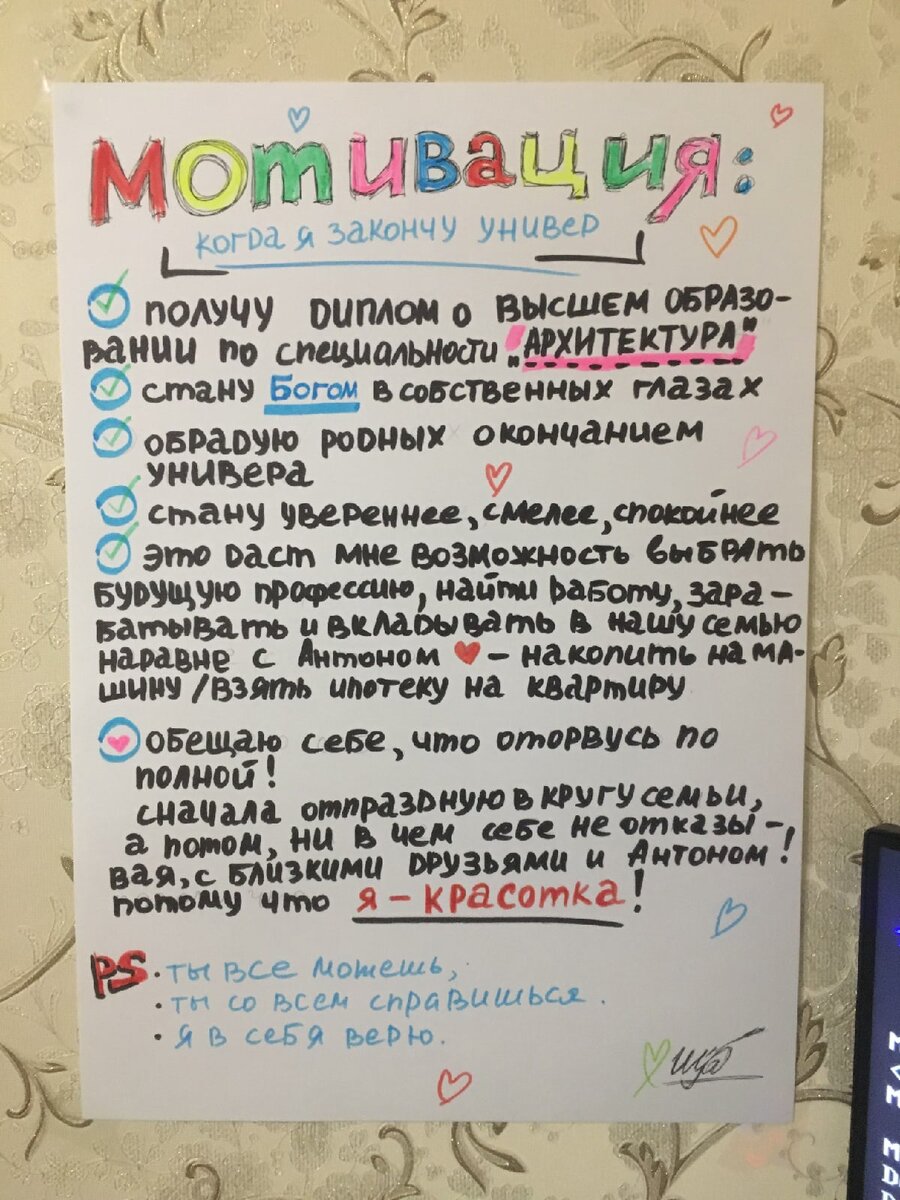 Мотивация:
когда я закончу универ
получу диплом о высшем образо-
вании по специальности "АРХИТЕКТУРА"
стану Богом в собственных глазах
обрадую родных окончанием
универа
стану увереннее, смелее, спокойнее
это даст мне возможность выбрать
будущую профессию, найти работу, зара-
батывать и вкладывать в нашу семью
наравне с Антоном ❤ - накопить на ма-
шину / взять ипотеку на квартиру
обещаю себе, что оторвусь по
полной!
сначала отпраздную в кругу семьи,
а потом, ни в чем себе не отказы-
вая, с близкими друзьями и Антоном!
потому что я - красотка!
PS. · ты все можешь,
· ты со всем справишься.
· я в себя верю.